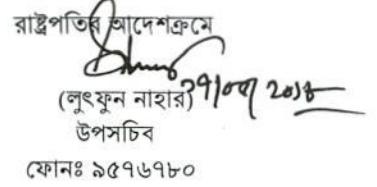 রাষ্ট্রপতির আদেশক্রমে
(লুৎফুন নাহার)
উপসচিব
ফোনঃ ৯৫৭৬৭৮০